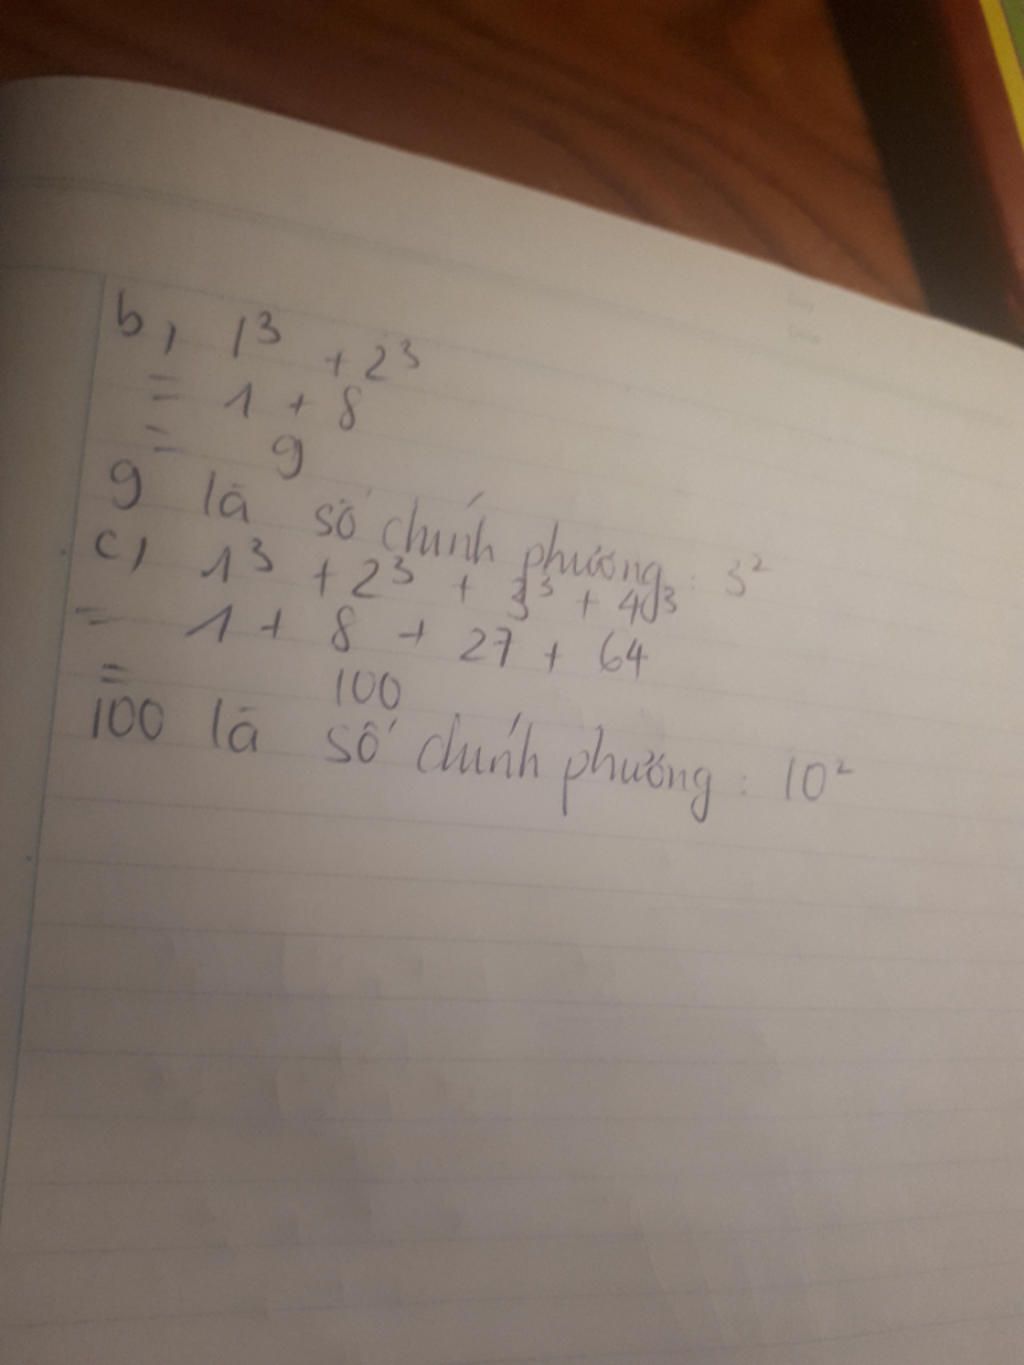 b, 1³ + 2³
= 1 + 8
= 9
9 là số chính phương : 3²
c, 1³ + 2³ + 3³ + 4³
= 1 + 8 + 27 + 64
= 100
100 là số chính phương : 10²